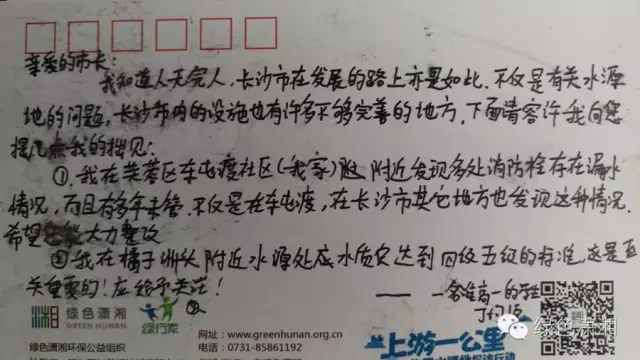 亲爱的市长:
我知道人无完人,长沙市在发展的路上亦是如此.不仅是有关水源
地的问题,长沙市内的设施也有许多不够完善的地方.下面请容许我向您
提几点我的拙见:
①.我在芙蓉区车屯渡社区(我家)附近发现多处消防栓存在漏水
情况,而且有多年未管.不仅是在车屯渡,在长沙市其它地方也发现这种情况.
希望您能大力整改
②我在橘子洲头附近水源处底水质只达到四级五级的标准,这是至
关重要的!应给予关注!
——一名准高一的学生
绿色潇湘
GREEN HUNAN
绿行家
网址:www.greenhunan.org.cn
电话:0731-85861192
绿色潇湘环保公益组织
上游一公里
绿色潇湘